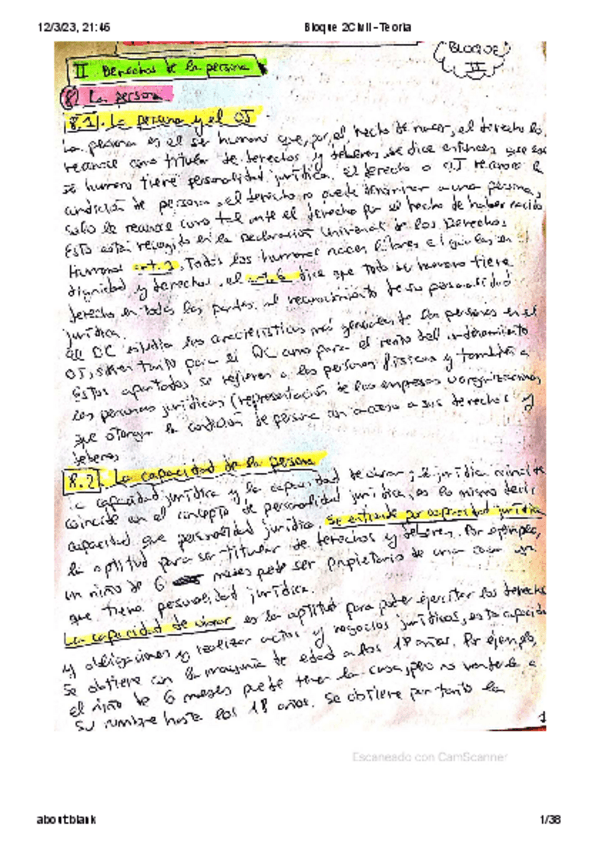 12/3/23, 21:46 Bloque 2Civil-Teoría
BLOQUE II
II Derechos de la persona
8) La persona
8.1. La persona y el OJ.
La persona es el ser humano que, por el hecho de nacer, el derecho lo
reconoce como titular de derechos y deberes, se dice entonces que
se humano tiene personalidad jurídica. El derecho o OJ reconoce la
condición de persona, el derecho no puede denominar a una persona,
solo le reconoce como tal ante el derecho por el hecho de haber nacido
Esto está recogido en la Declaración Universal de los Derechos
Humanos art. 1, Todos los humanos nacen libres e iguales en
dignidad y derechos, el art. 6 dice que todo ser humano tiene
derecho en todas las partes, al reconocimiento de su personalidad
jurídica.
El DC estudia las características más generales de las personas en el
OJ, sirven tanto para el DC como para el resto del ordenamiento
Estos apartados se refieren a las personas físicas y también a
las personas jurídicas (representación de las empresas u organizaciones
que otorgan la condición de persona con acceso a sus derechos y
deberes
8.2. La capacidad de la persona
capacidad jurídica y la capacidad de obrar; la jurídica
coincide en el concepto de personalidad jurídica, es lo mismo decir
capacidad que personalidad jurídica. Se entiende por capacidad jurídica
la aptitud para ser titular de derechos y deberes. Por ejemplo,
un niño de 6 meses puede ser propietario de una casa
que tiene personalidad jurídica.
La capacidad de obrar es la aptitud para poder ejercitar los derechos
y obligaciones y realizar actos y negocios jurídicos, esta capacidad
se obtiene con la mayoría de edad a los 18 años. Por ejemplo,
el niño de 6 meses puede tener la casa, pero no venderla a
su nombre hasta los 18 años. Se obtiene por tanto la
1
Escaneado con CamScanner
about:blank 1/38